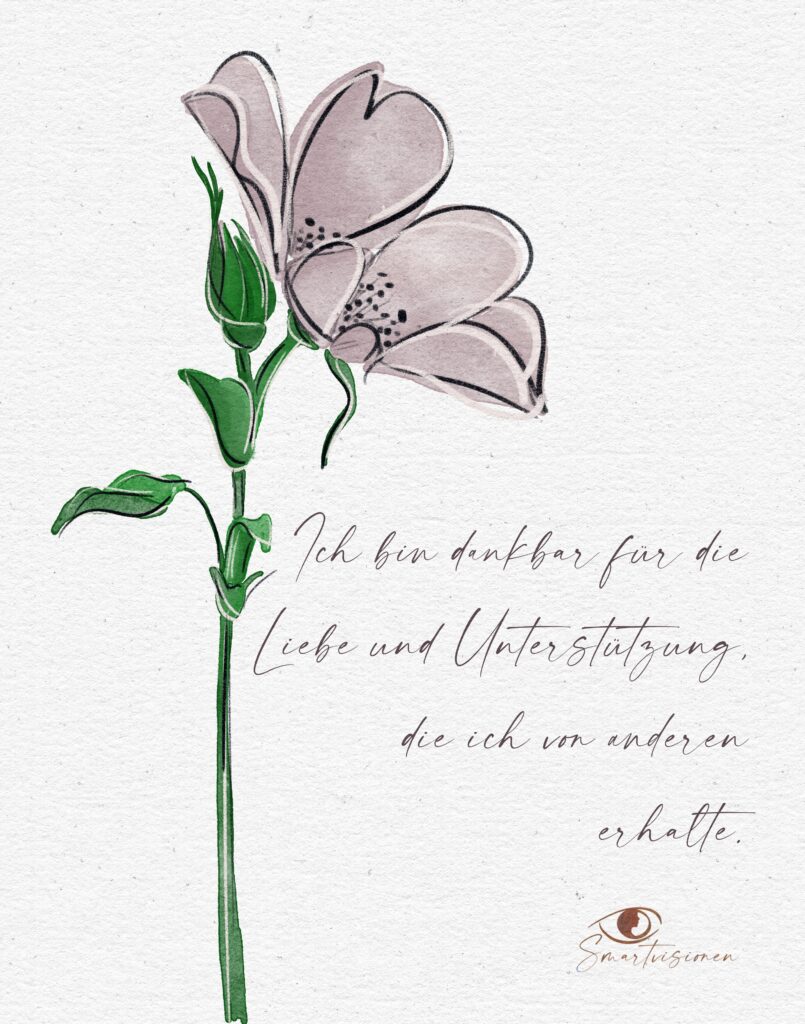 Ich bin dankbar für die
Liebe und Unterstützung,
die ich von anderen
erhalte.
Smartvisionen